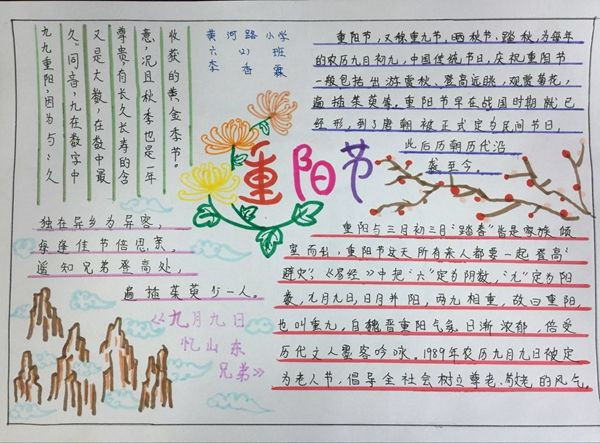 九九重阳，因为与“久
久”同音，九在数字中
又是大数，在数中最
尊贵，有长久长寿的含
意，况且秋季也是一年
收获的黄金季节。
黄河路小学
六（2）班
李香霖
重阳节，又称重九节、晒秋节、踏秋，为每年
的农历九日初九，中国传统节日，庆祝重阳节
一般包括出游赏秋、登高远眺，观赏菊花，
遍插茱萸等。重阳节早在战国时期就已
经形，到了唐朝被正式定为民间节日，
此后历朝历代沿
袭至今。
重阳节
独在异乡为异客，
每逢佳节倍思亲，
遥知兄弟登高处，
遍插茱萸少一人。
《九月九日
忆山东
兄弟》
重阳与三月初三日“踏春”皆是家族倾
室而出，重阳节这天所有亲人都要一起登高“
避灾”，《易经》中把“六”定为阴数，“九”定为阳
数，九月九日，日月并阳，两九相重，故曰重阳，
也叫重九，自魏晋重阳气氛日渐浓郁，倍受
历代文人墨客吟咏。1989年农历九月九日被定
为老人节，倡导全社会树立尊老、敬老的风气。